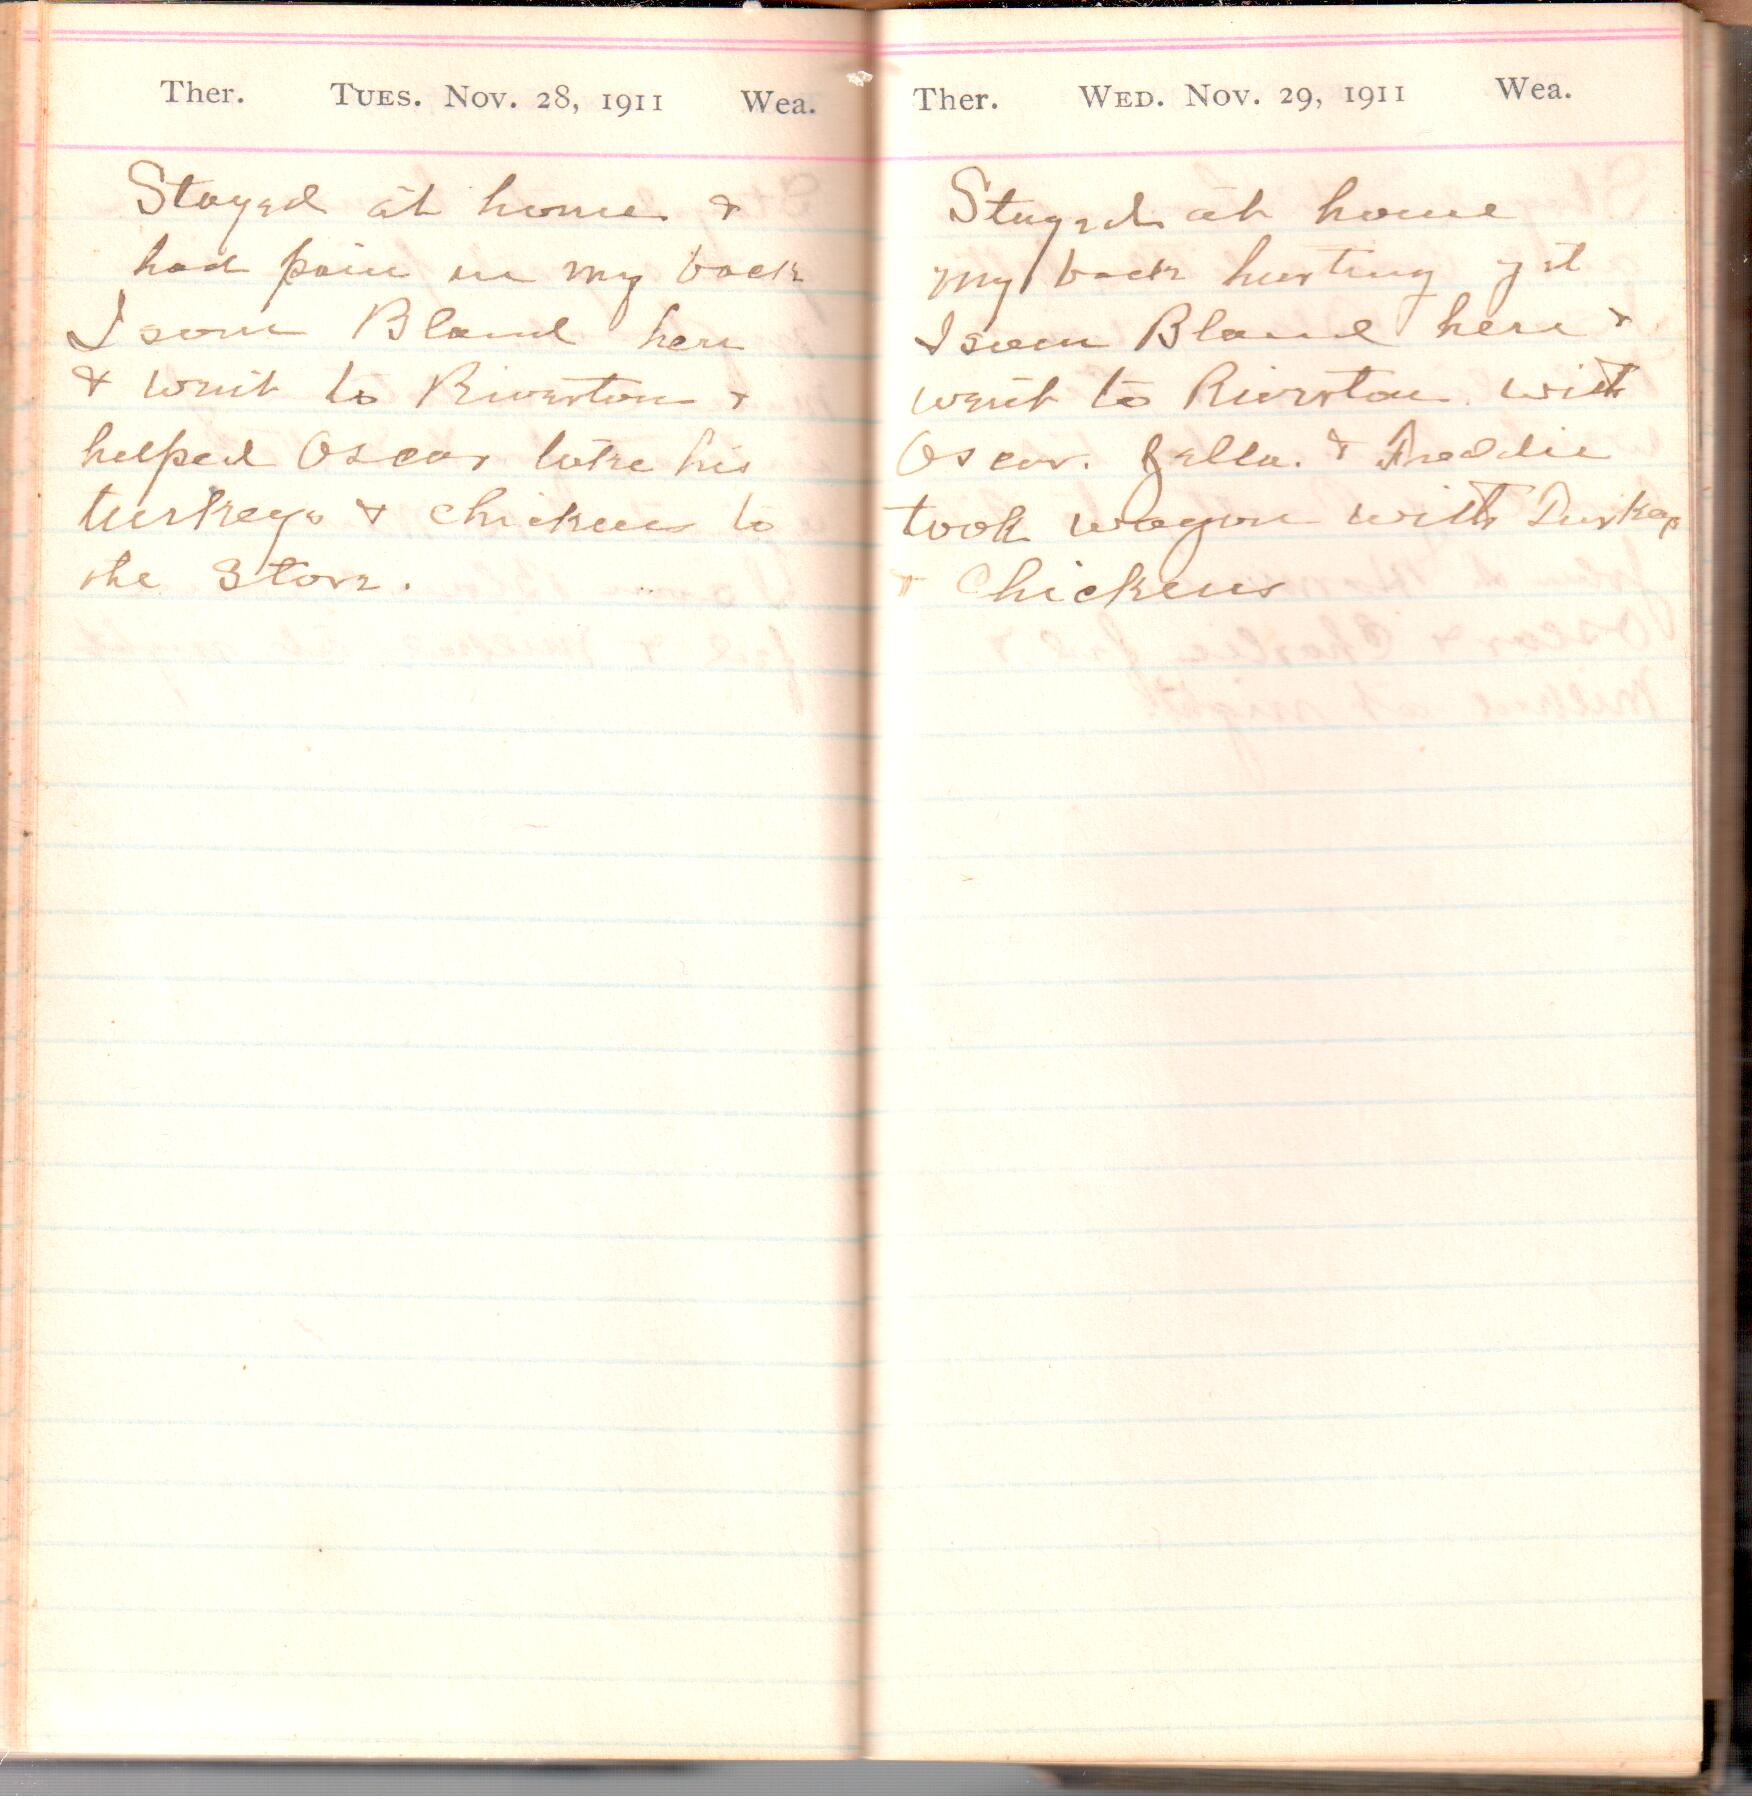 Ther. Tues. Nov. 28, 1911 Wea.
Stayed at home &
had pain in my back
Bland here
& went to Riverton &
helped Oscar take his
turkeys & chickens to
the Store.
Ther. Wed. Nov. 29, 1911 Wea.
Stayed at home
my back hurting yet
Bland here &
went to Riverton with
Oscar. & Freddie
took wagon with Turkeys
& Chickens